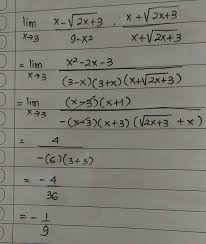 lim x→3 x-√2x+3 / 9-x² · x+√2x+3 / x+√2x+3
= lim x→3 x²-2x-3 / (3-x)(3+x)(x+√2x+3)
= lim x→3 (x-3)(x+1) / -(x-3)(x+3)(√2x+3 + x)
= 4 / -(6)(3+3)
= -4 / 36
= - 1 / 9